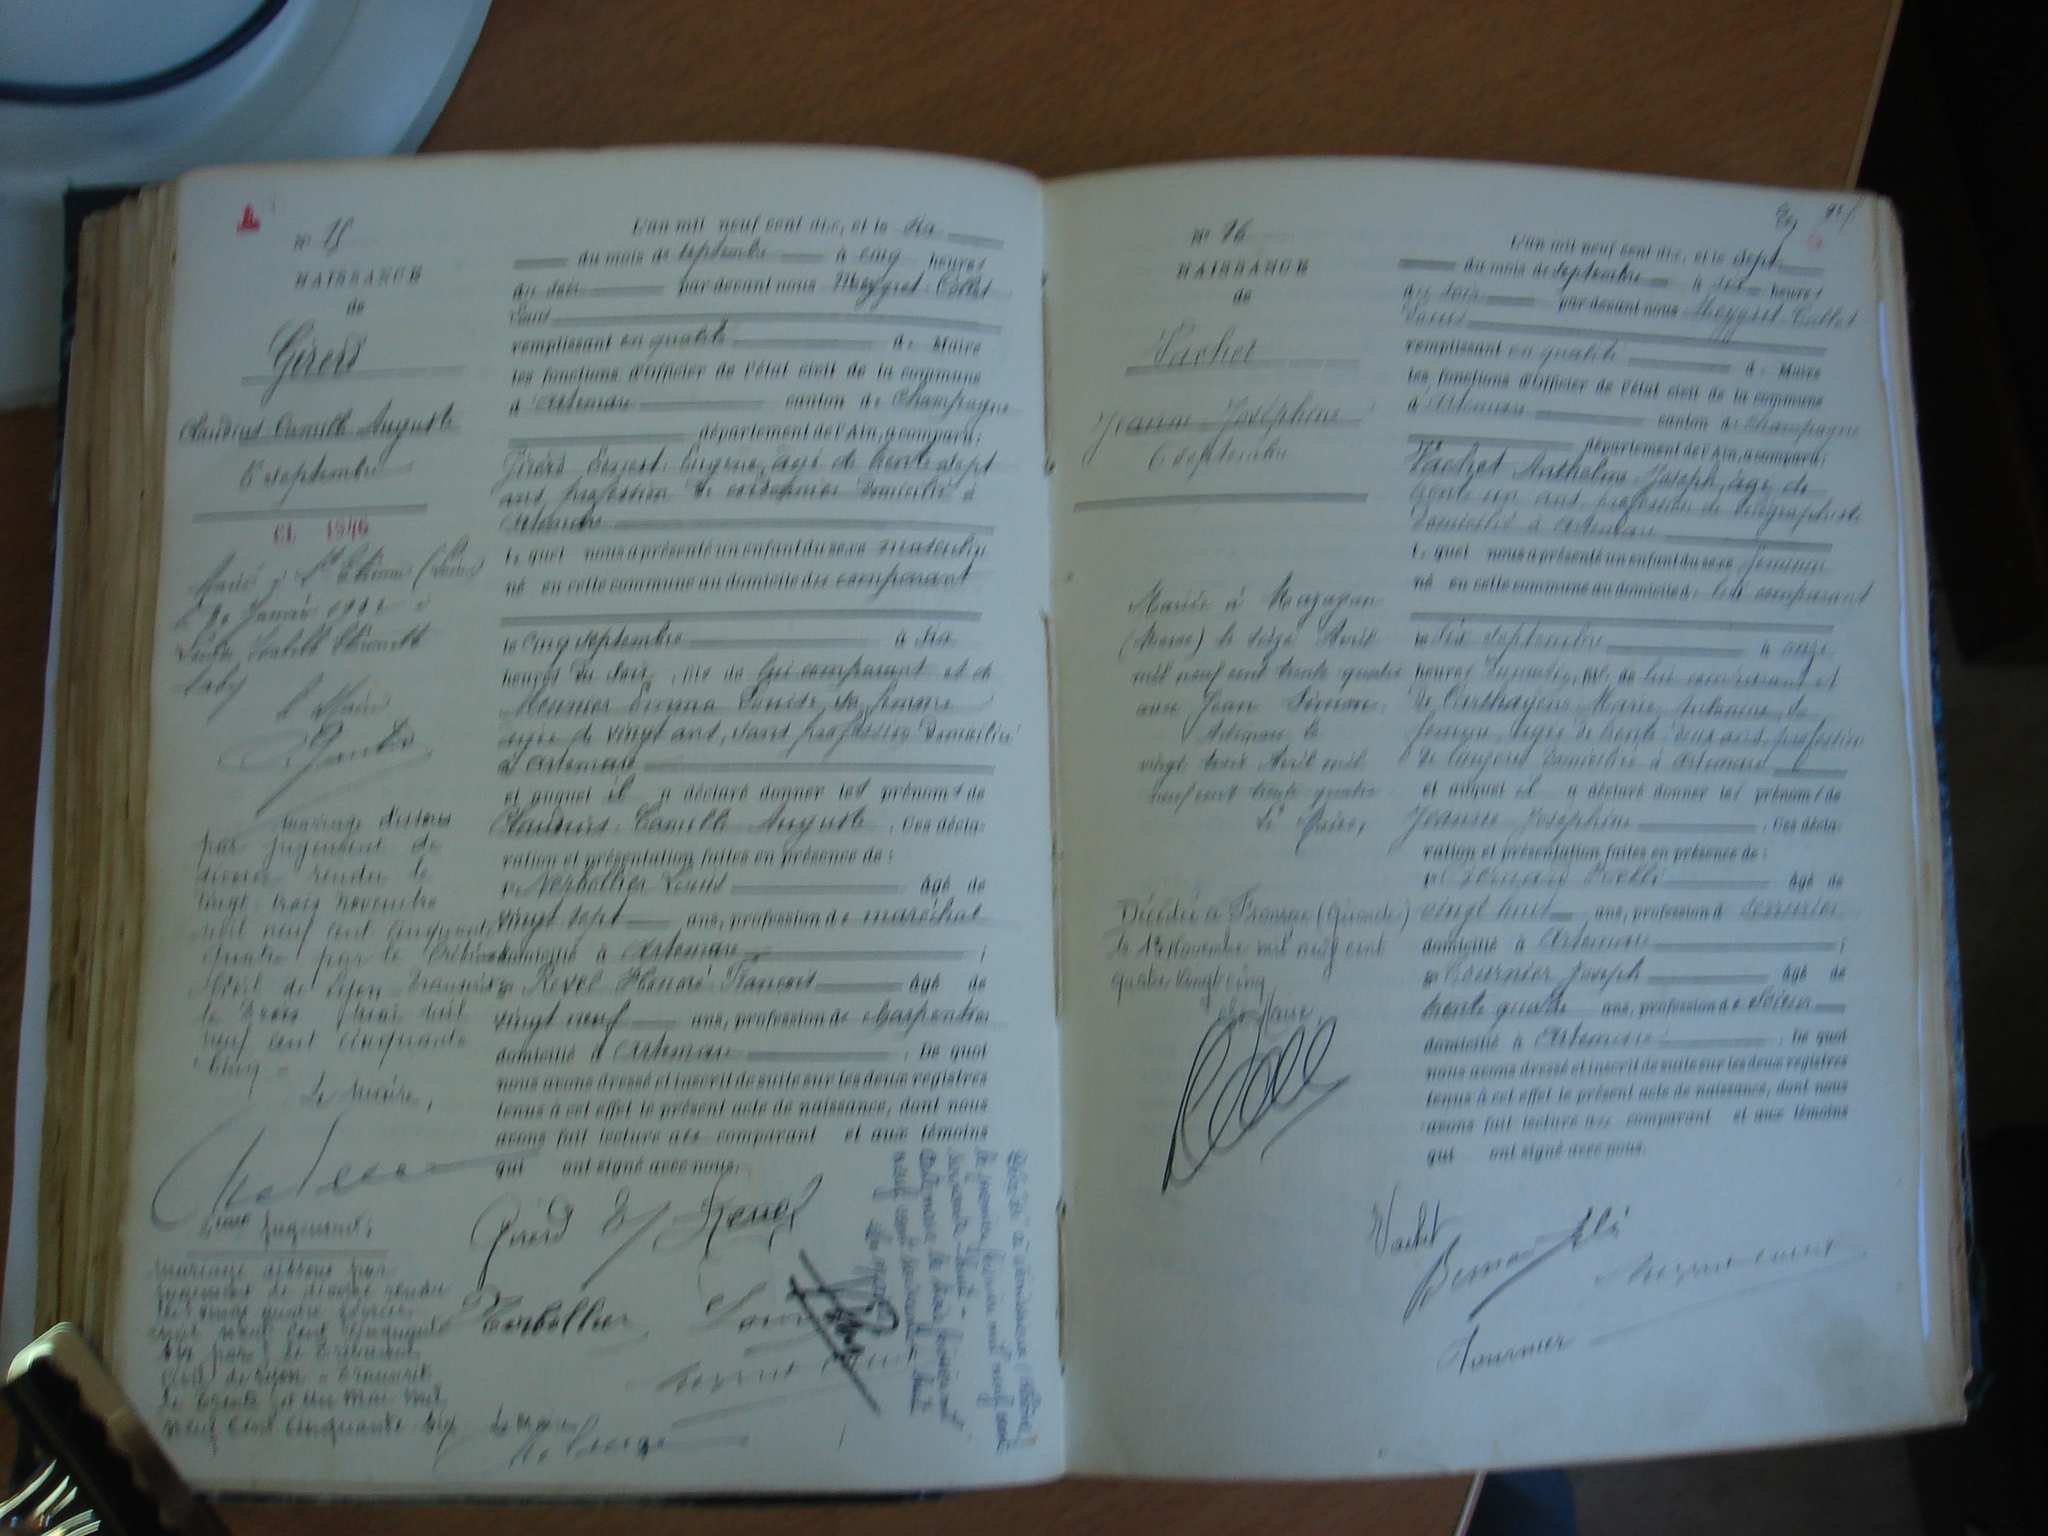 N° 15
NAISSANCE
de
Girerd
Claudius Camille Auguste
5 septembre
CL 1546
Marié à St Etienne (Loire)
le 20 Janvier
Le Maire
mariage dissous
par jugement de
divorce rendu le
vingt trois novembre
mil neuf cent cinquante
quatre par le Tribunal
Civil de Lyon Transcrit
le trois mai mil
neuf cent cinquante
cinq -
Le Maire,
jugement:
mariage dissous par
jugement de divorce rendu
le quatre février
mil neuf cent cinquante
six par le Tribunal
civil de Lyon - Transcrit
le trente et un mai mil
neuf cent cinquante six
Le Maire
L'an mil neuf cent dix, et le six
du mois de septembre à cinq heures
du soir par devant nous Meygret-Collet
Louis
remplissant en qualité de Maire
les fonctions d'officier de l'état civil de la commune
d'Artemare canton de Champagne
département de l'Ain, a comparu:
Girerd Ernest Eugène, âgé de trente sept
ans, profession de cordonnier domicilié à
Artemare
lequel nous a présenté un enfant du sexe masculin
né en cette commune au domicile du comparant
le cinq septembre à six
heures du soir, fils de lui comparant et de
Meunier Emma Louise, sa femme
âgée de vingt ans, sans profession domiciliée
à Artemare
et auquel il a déclaré donner les prénoms de
Claudius Camille Auguste. Ces décla-
ration et présentation faites en présence de:
1° Verbollier Louis âgé de
vingt sept ans, profession de maréchal
domicilié à Artemare ;
2° Revel Honoré François âgé de
vingt neuf ans, profession de charpentier
domicilié à Artemare. De quoi
nous avons dressé et inscrit de suite sur les deux registres
tenus à cet effet le présent acte de naissance, dont nous
avons fait lecture aux comparant et aux témoins
qui ont signé avec nous.
Girerd Revel
Verbollier Louis
Décédé à Vénissieux (Rhône)
le premier février mil neuf cent
soixante huit -
Artemare le février mil
neuf cent soixante huit
Le Maire
N° 16
NAISSANCE
de
Vachet
Jeanne Joséphine
6 septembre
Mariée à Mazagan
(Maroc) le seize Avril
mil neuf cent trente quatre
avec Jean Simon.
Artemare le
vingt trois Avril mil
neuf cent trente quatre
Le Maire,
Décédée à Fronsac (Gironde)
le 13 novembre mil neuf cent
quatre vingt cinq
Le Maire,
L'an mil neuf cent dix, et le sept
du mois de septembre à six heures
du soir par devant nous Meygret-Collet
Louis
remplissant en qualité de Maire
les fonctions d'officier de l'état civil de la commune
d'Artemare canton de Champagne
département de l'Ain, a comparu:
Vachet Anthelme Joseph, âgé de
trente un ans, profession de télégraphiste
domicilié à Artemare
lequel nous a présenté un enfant du sexe féminin
né en cette commune au domicile de lui comparant
le six septembre à onze
heures du matin, fille de lui comparant et
de Marie Antoinette, sa
femme, âgée de trente deux ans, profession
de lingère domiciliée à Artemare
et auquel il a déclaré donner les prénoms de
Jeanne Joséphine. Ces décla-
ration et présentation faites en présence de:
1° Bernard âgé de
vingt huit ans, profession de serrurier
domicilié à Artemare ;
2° Tournier Joseph âgé de
trente quatre ans, profession de scieur
domicilié à Artemare. De quoi
nous avons dressé et inscrit de suite sur les deux registres
tenus à cet effet le présent acte de naissance, dont nous
avons fait lecture aux comparant et aux témoins
qui ont signé avec nous.
Vachet
Bernard
Tournier